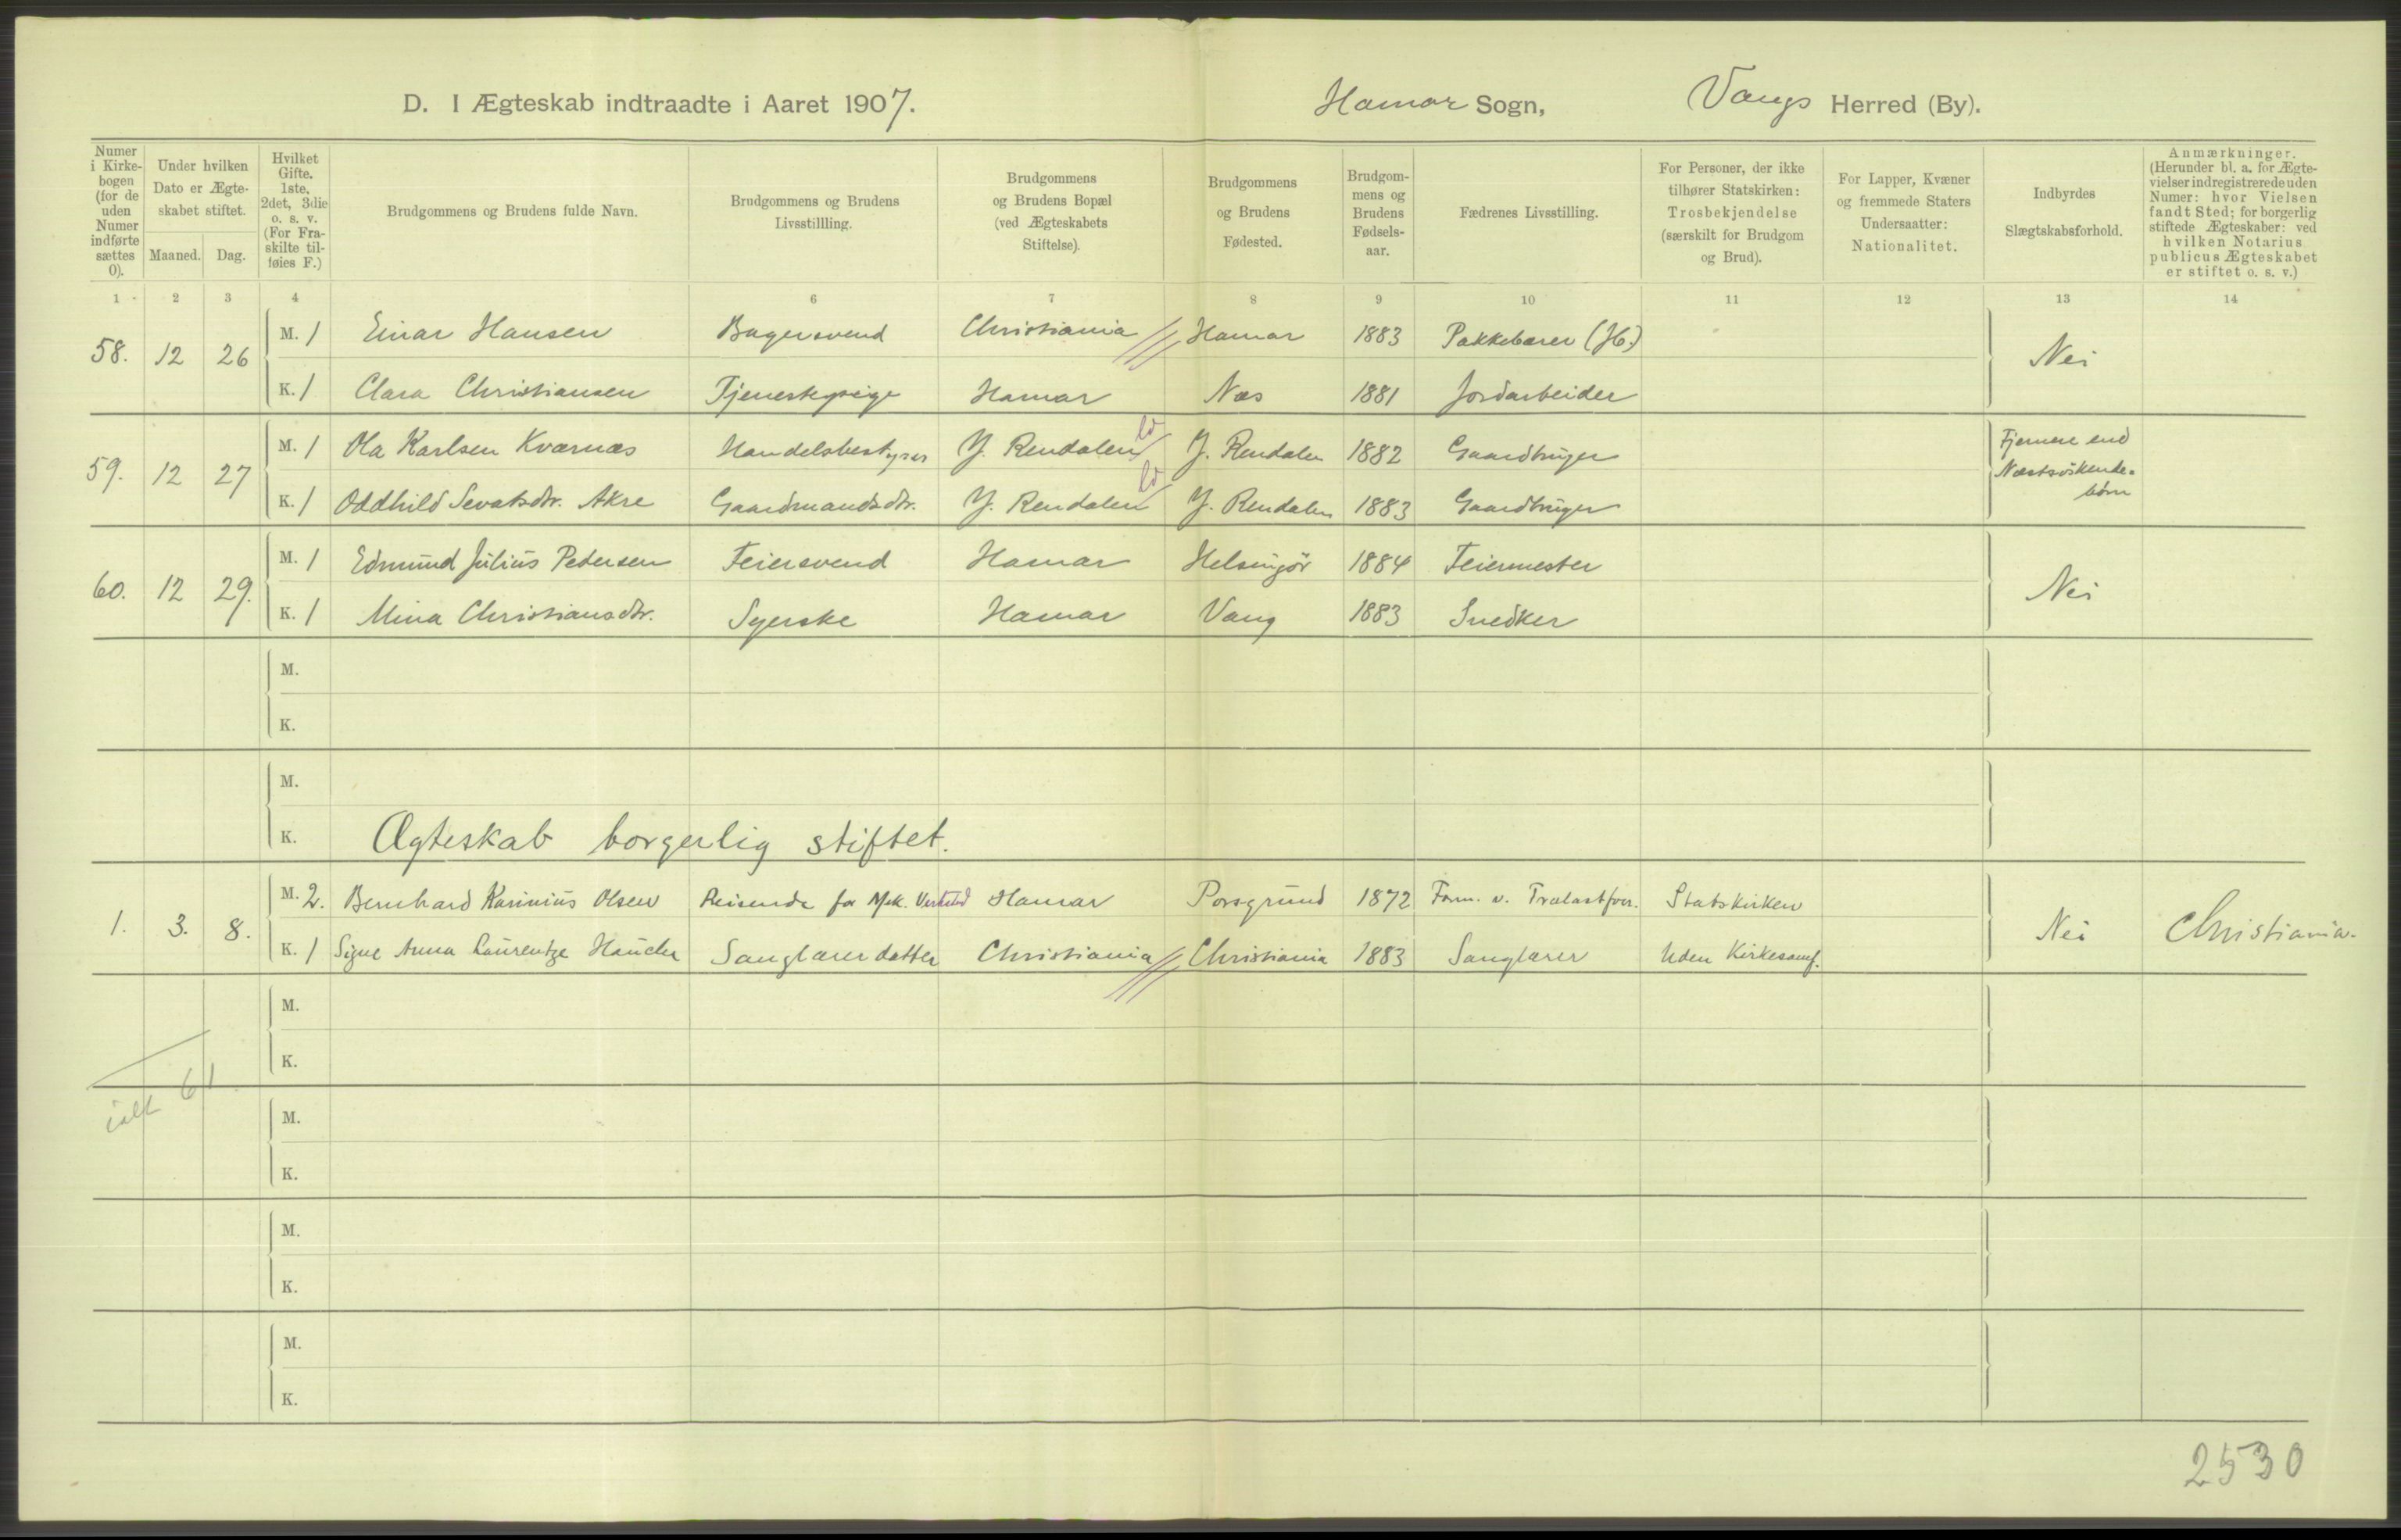 D. I Ægteskab indtraadte i Aaret 1907. Hamar Sogn, Vangs Herred (By).
Numer i Kirke-bogen (for de uden Numer indførte sættes 0).
Under hvilken Dato er Ægte-skabet stiftet.
Maaned. Dag.
Hvilket Gifte. 1ste, 2det, 3die o. s. v. (For Fra-skilte til-føies F.)
Brudgommens og Brudens fulde Navn.
Brudgommens og Brudens Livsstillling.
Brudgommens og Brudens Bopæl (ved Ægteskabets Stiftelse).
Brudgommens og Brudens Fødested.
Brudgom-mens og Brudens Fødsels-aar.
Fædrenes Livsstilling.
For Personer, der ikke tilhører Statskirken: Trosbekjendelse (særskilt for Brudgom og Brud).
For Lapper, Kvæner og fremmede Staters Undersaatter: Nationalitet.
Indbyrdes Slægtskabsforhold.
Anmærkninger. (Herunder bl. a. for Ægte-vielser indregistrerede uden Numer: hvor Vielsen fandt Sted; for borgerlig stiftede Ægteskaber: ved hvilken Notarius publicus Ægteskabet er stiftet o. s. v.)
1 2 3 4 6 7 8 9 10 11 12 13 14
58. 12 26 M. 1 Einar Hansen Bagersvend Christiania Hamar 1883 Pakkebærer (H.) Nei
K. 1 Clara Christiansen Tjenestepige Hamar Næs 1881 Jordarbeider
59. 12 27 M. 1 Ola Karlsen Kværnæs Handelsbestyrer Y. Rendalen Y. Rendalen 1882 Gaardbruger Fjernere end Næstsøskende-børn
K. 1 Oddhild Sevatsdtr. Akre Gaardmandsdtr. Y. Rendalen Y. Rendalen 1883 Gaardbruger
60. 12 29. M. 1 Edmund Julius Petersen Feiersvend Hamar Helsingör 1884 Feiermester Nei
K. 1 Mina Christiansdtr. Syerske Hamar Vang 1883 Snedker
M.
K.
M.
K. Ægteskab borgerlig stiftet.
1. 3. 8. M. 2. Bernhard Karinius Olsen Reisende for Mek. Verksted Hamar Porsgrund 1872 Form. v. Trælastforr. Statskirken Nei Christiania.
K. 1 Signe Anna Laurentze Sanglærerdatter Christiania Christiania 1883 Sanglærer Uden Kirkesamf.
M.
K.
ialt 61
M.
K.
M.
K.
M.
K.
2530